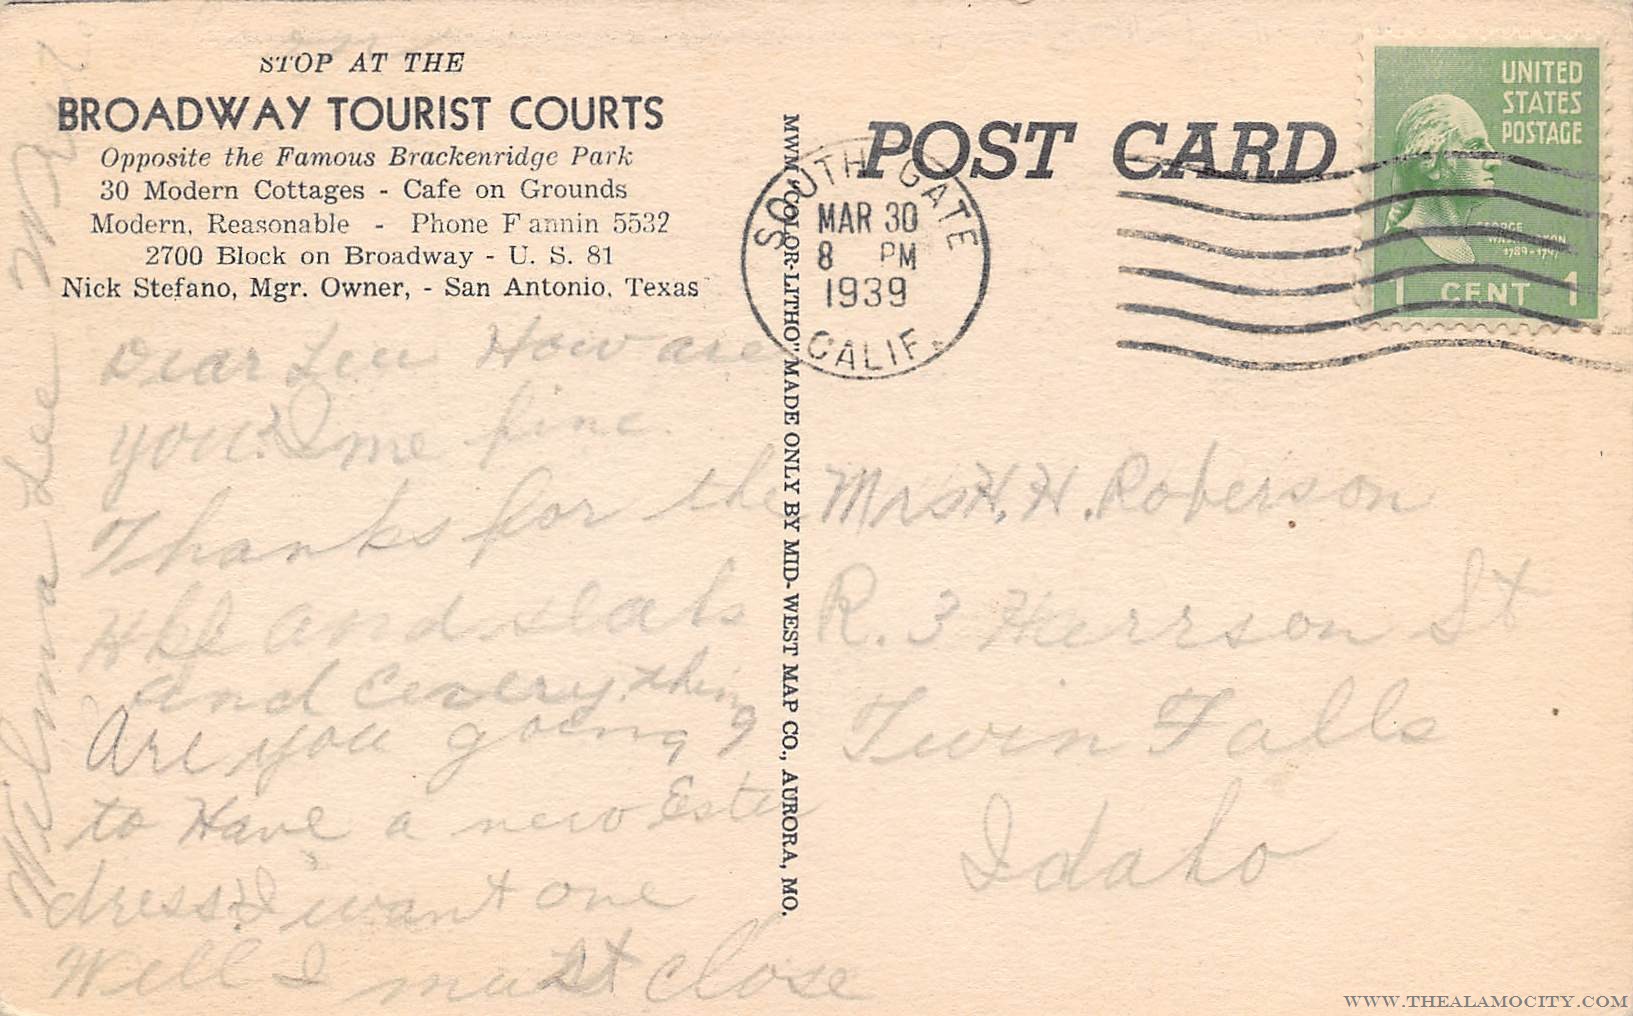 STOP AT THE
BROADWAY TOURIST COURTS
Opposite the Famous Brackenridge Park
30 Modern Cottages - Cafe on Grounds
Modern, Reasonable - Phone Fannin 5532
2700 Block on Broadway - U. S. 81
Nick Stefano, Mgr. Owner, - San Antonio, Texas
Dear How are
you? I me fine
Thanks for the
and
and everything
Are you going
to Have a new Ester
dress? I want one
Well I must close
Wilma Lee
MWM "COLOR-LITHO" MADE ONLY BY MID-WEST MAP CO., AURORA, MO.
POST CARD
SOUTH GATE
MAR 30
8 PM
1939
CALIF.
UNITED
STATES
POSTAGE
GEORGE
WASHINGTON
1789-1797
1 CENT 1
Mrs H. H. Roberson
R. 3 Herrson St
Twin Falls
Idaho
WWW.THEALAMOCITY.COM